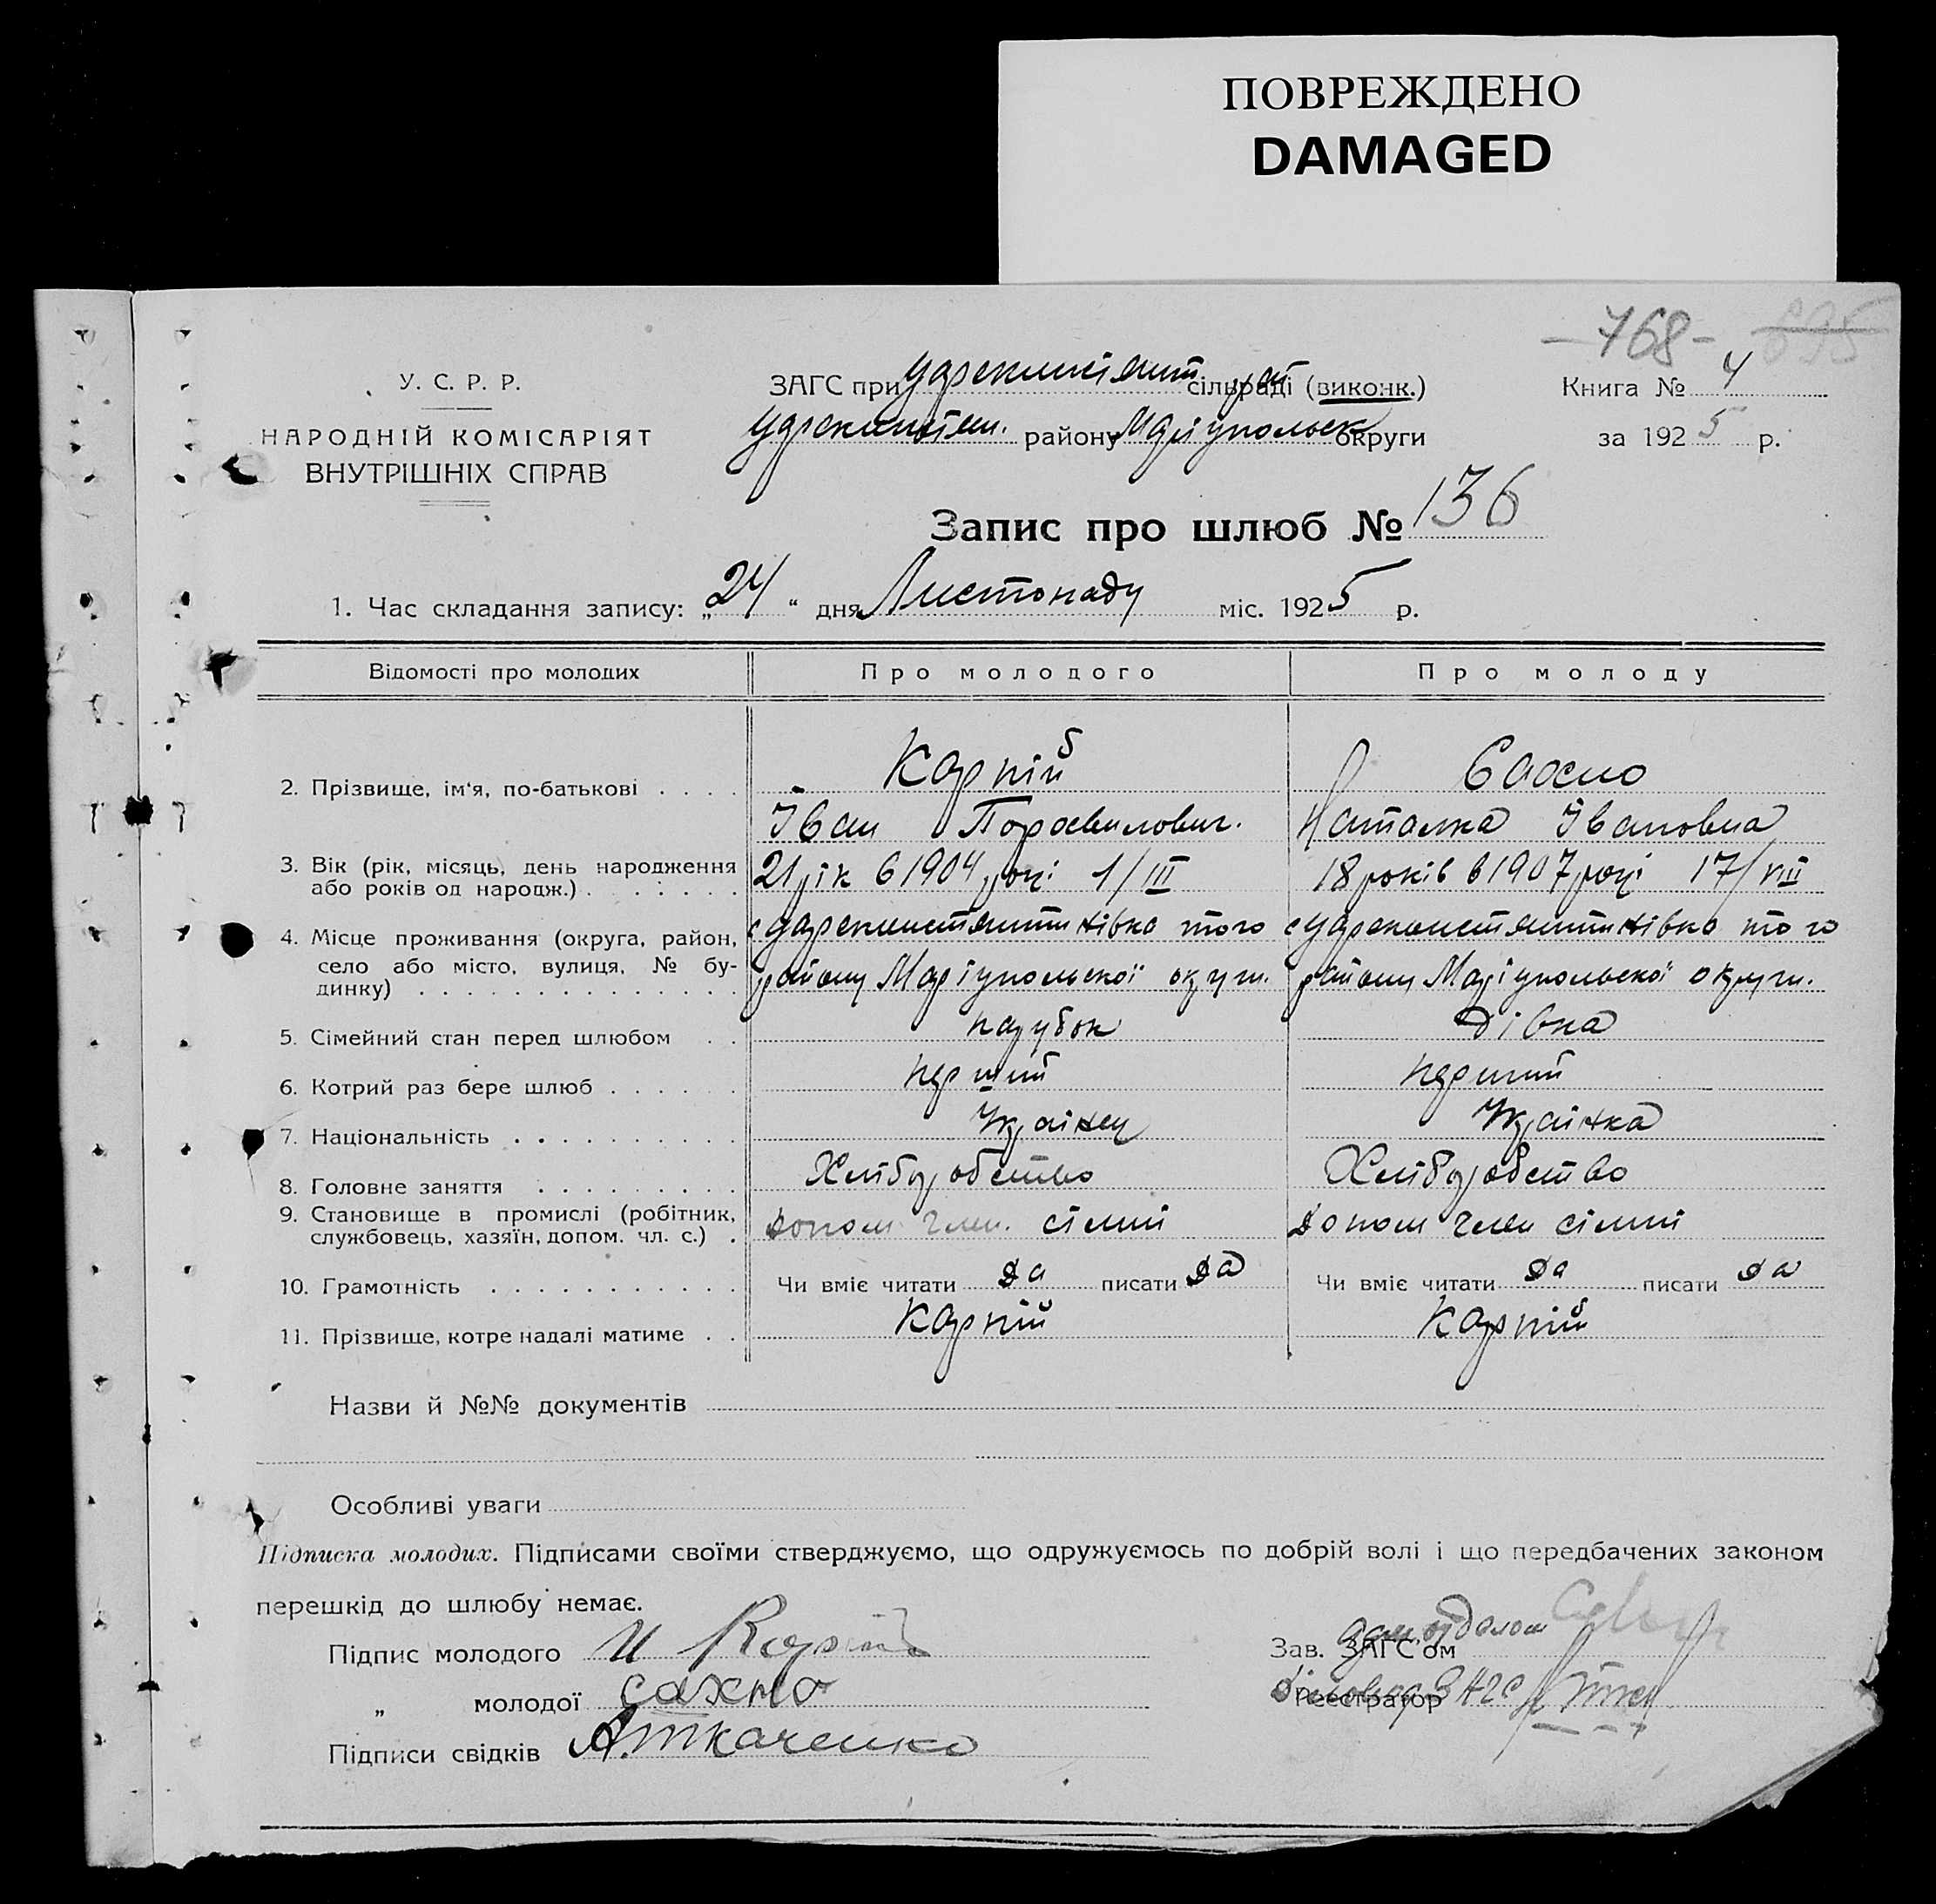 ПОВРЕЖДЕНО
DAMAGED
-768- 695
У. С. Р. Р.
НАРОДНІЙ КОМІСАРІЯТ
ВНУТРІШНІХ СПРАВ
ЗАГС при сільраді (виконк.)
району Маріупольськ округи
Книга № 4
за 1925 р.
Запис про шлюб № 136
1. Час складання запису: „24“ дня Листопаду міс. 1925 р.
Відомості про молодих
Про молодого
Про молоду
2. Прізвище, ім'я, по-батькові . . . .
Карпій
Іван
Сахно
Наталка Івановна
3. Вік (рік, місяць, день народження
або років од народж.) . . . . . .
21 рік в 1904 році 1/III
18 років в 1907 році 17/VIII
4. Місце проживання (округа, район,
село або місто, вулиця, № бу-
динку) . . . . . . . . . . . . . .
того
району Маріупольської округи.
того
району Маріупольської округи.
5. Сімейний стан перед шлюбом . .
парубок
дівка
6. Котрий раз бере шлюб . . . . . .
перший
перший
7. Національність . . . . . . . . . .
Українец
Українка
8. Головне заняття . . . . . . . . .
Хліборобство
Хліборобство
9. Становище в промислі (робітник,
службовець, хазяїн, допом. чл. с.) .
допом член. сімии
допом член сімии
10. Грамотність . . . . . . . . . . .
Чи вміє читати да писати да
Чи вміє читати да писати да
11. Прізвище, котре надалі матиме . .
Карпій
Карпій
Назви й №№ документів
Особливі уваги
Підписка молодих. Підписами своїми стверджуємо, що одружуємось по добрій волі і що передбачених законом
перешкід до шлюбу немає.
Підпис молодого И Карпій
„ молодої Сахно
Підписи свідків А. Ткаченко
Зав. ЗАГС'ом
Реєстратор